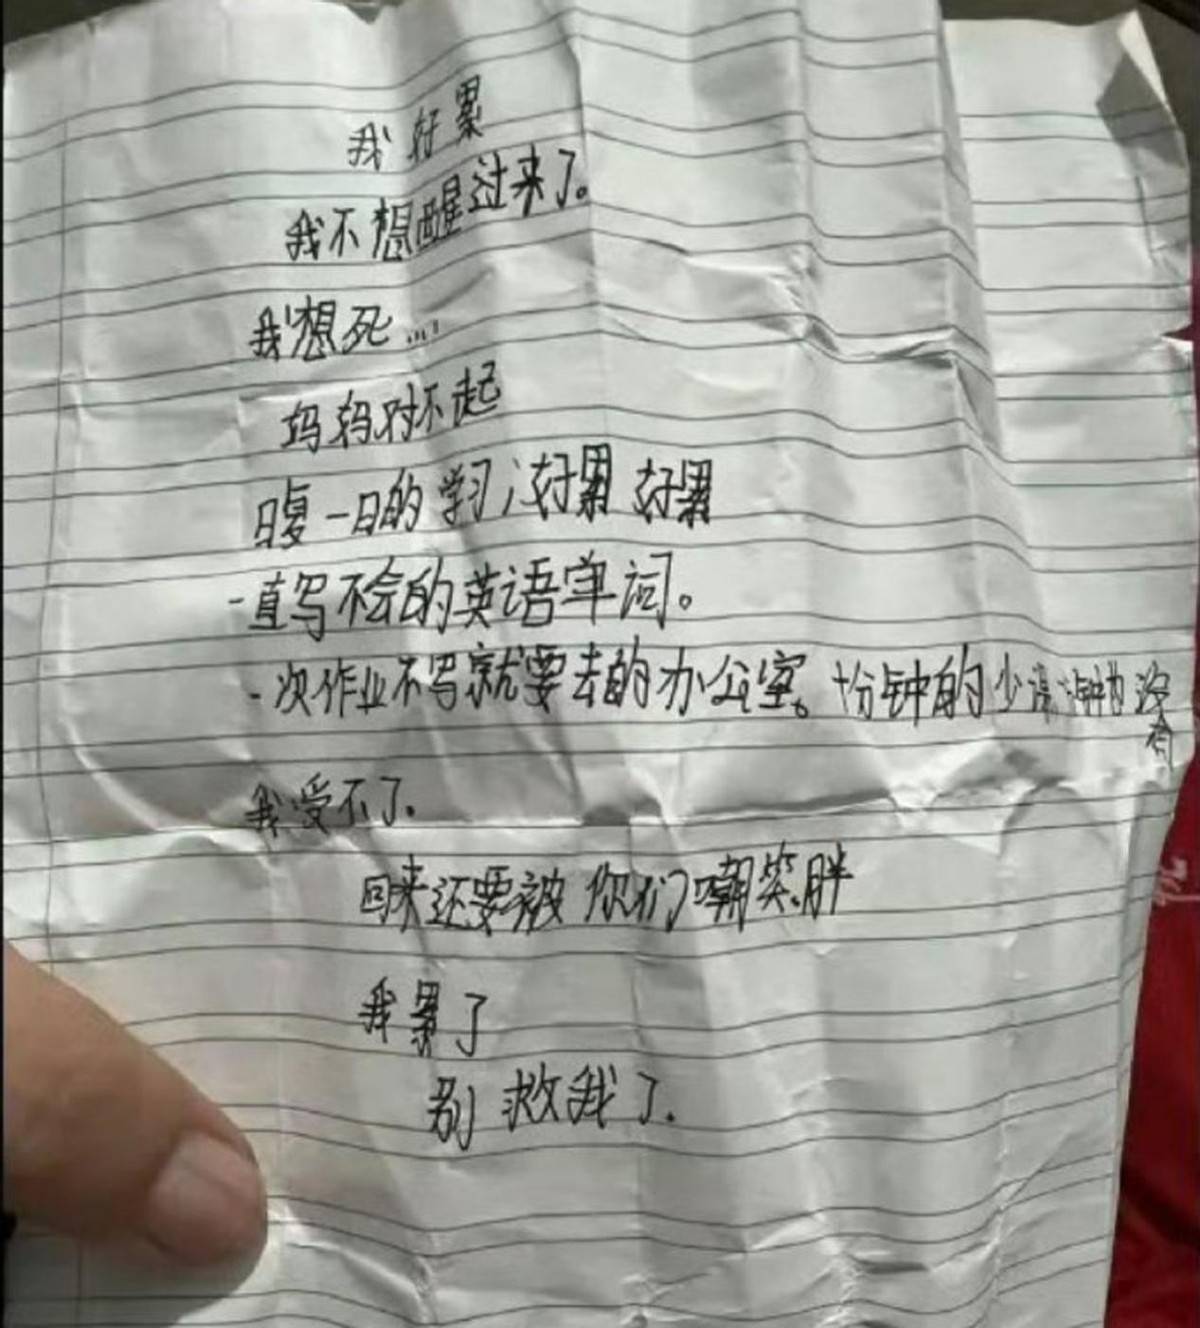 我好累
我不想醒过来了。
我想死...
妈妈对不起
日复一日的学习,好累 好累
一直写不会的英语单词。
一次作业不写就要去的办公室。十分钟的少课 钟为没有
我受不了.
回来还要被你们嘲笑胖
我累了
别救我了.